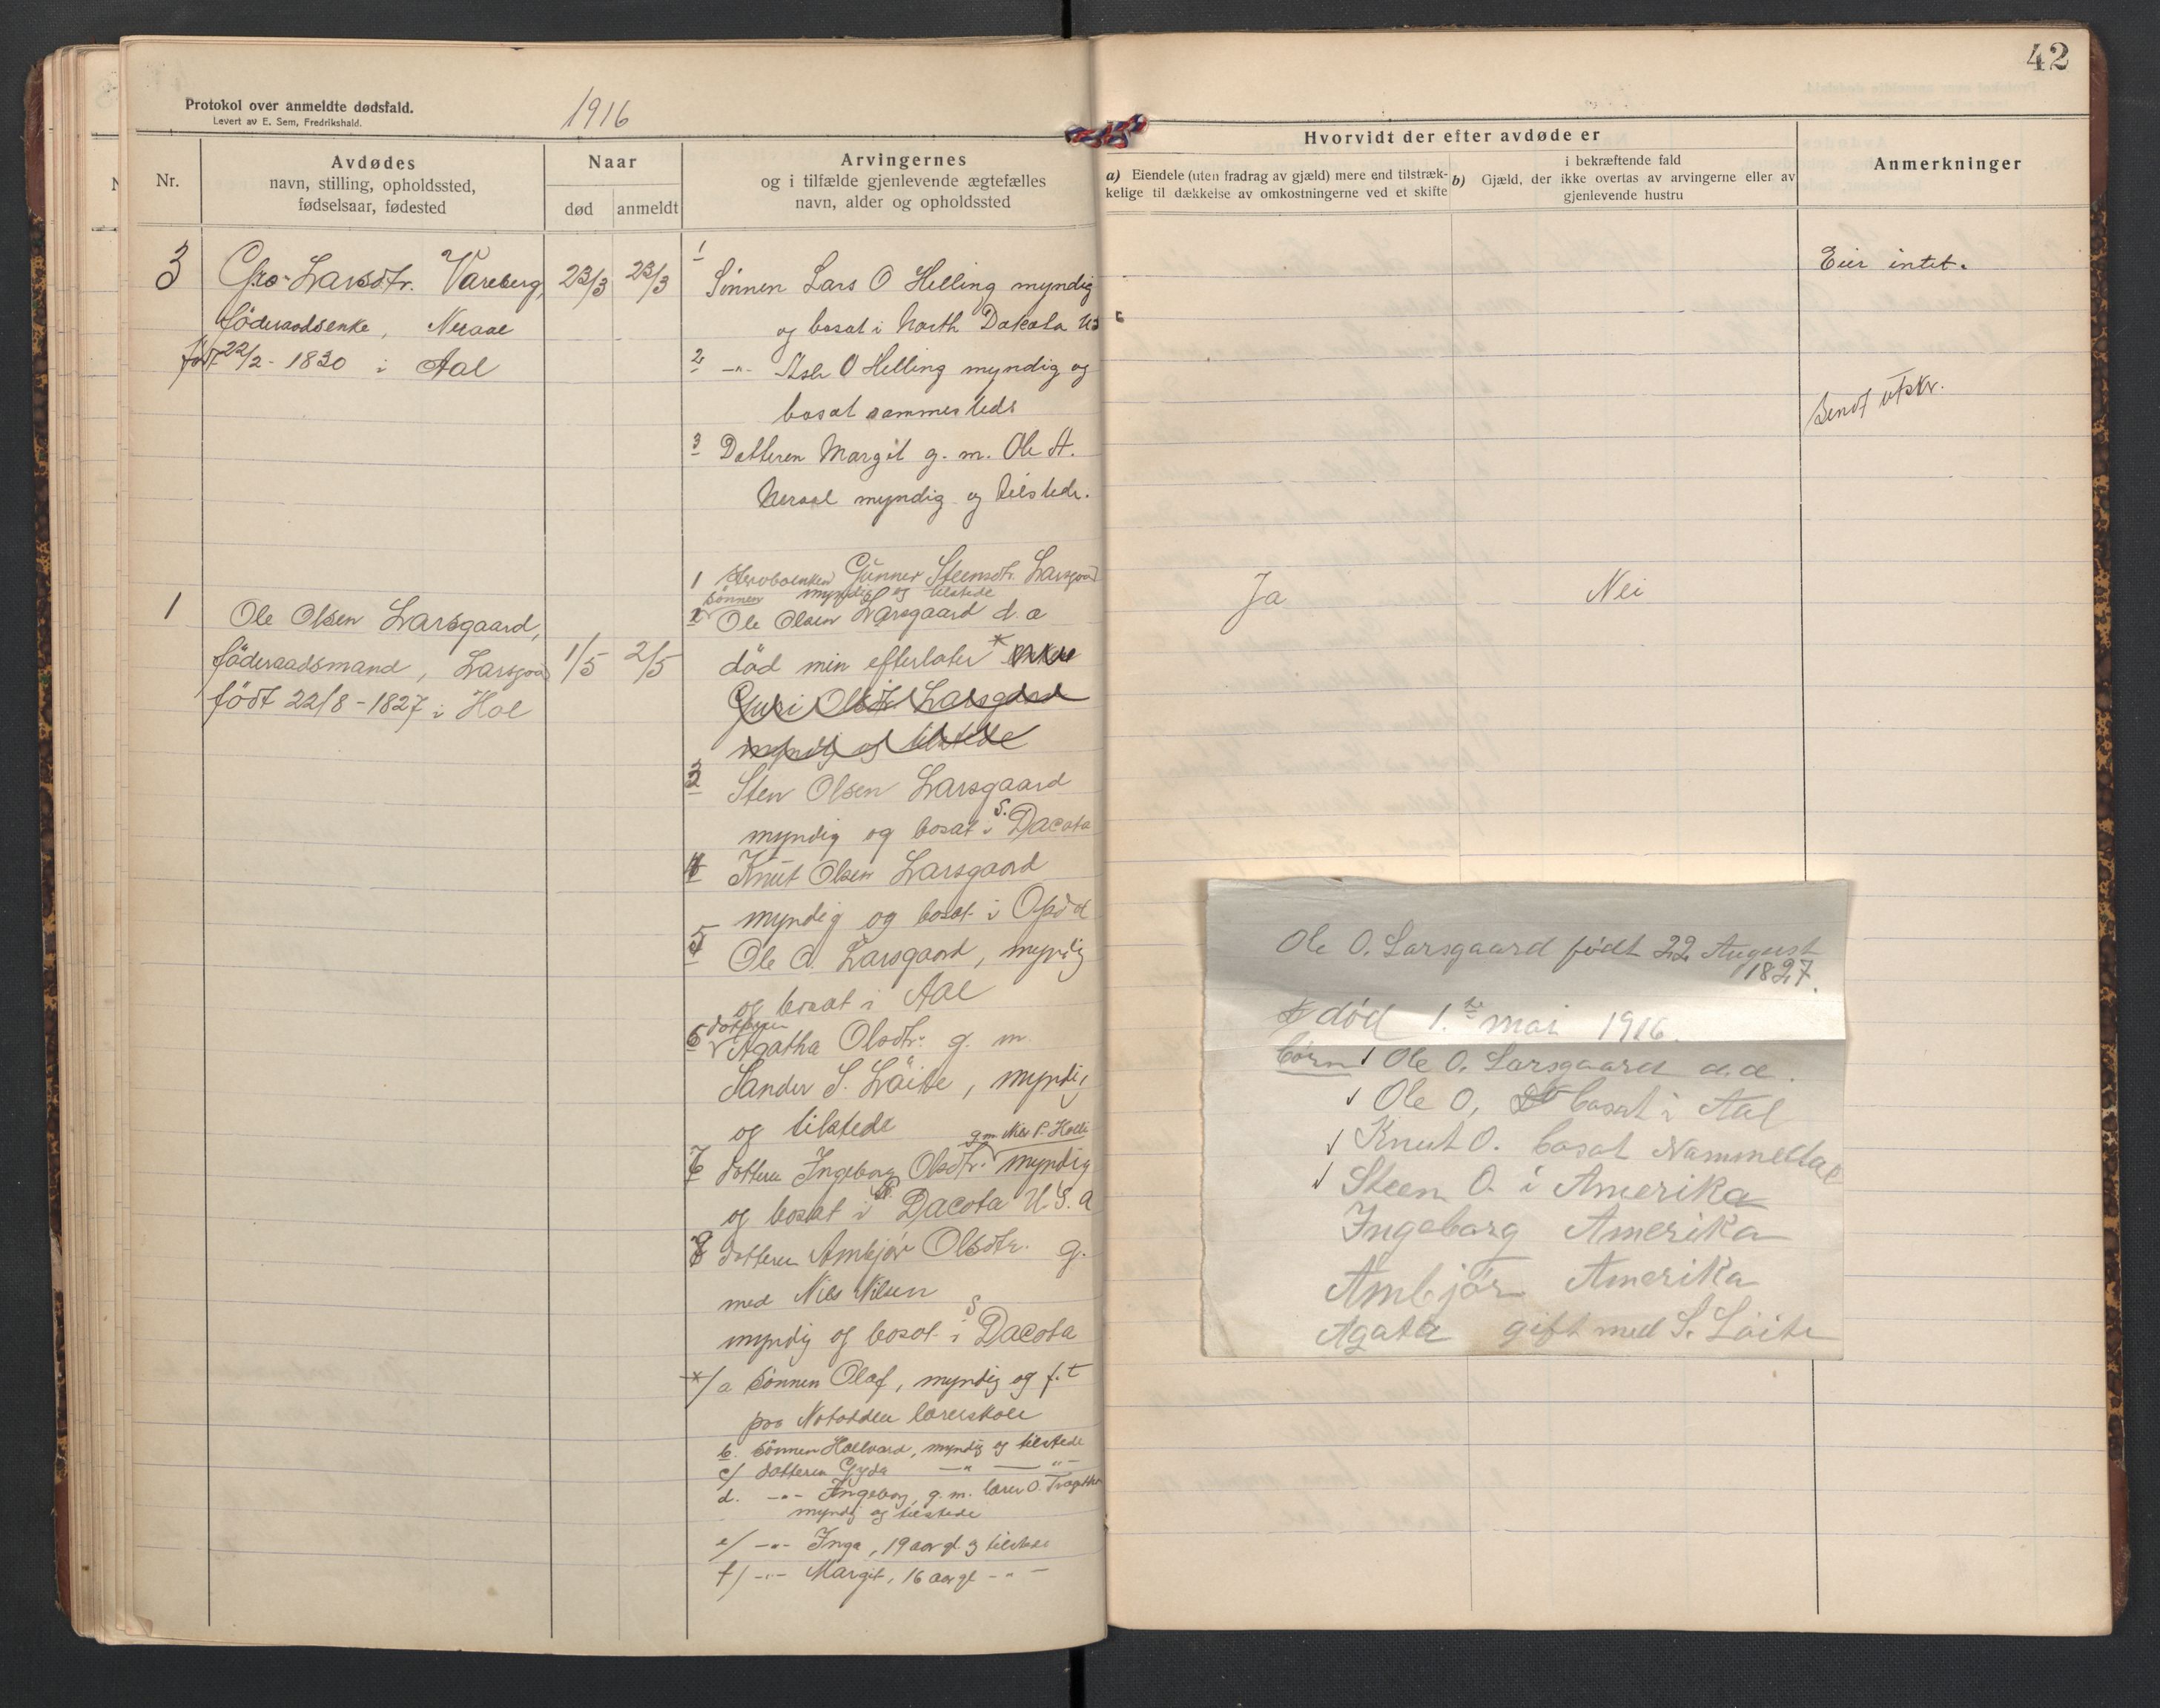 Protokol over anmeldte dødsfald.
Levert av E. Sem, Fredrikshald.
1916
Nr.
Avdødes
navn, stilling, opholdssted,
fødselsaar, fødested
Naar
død
anmeldt
Arvingernes
og i tilfælde gjenlevende ægtefælles
navn, alder og opholdssted
3
Gro Larsdtr. Vareberg,
föderaadsenke, Neraal
født 22/2 - 1830 i Aal
23/3
23/3
1
Sönnen Lars O Helling myndig
og bosat i North Dakota US
2 -"- Asle O Helling myndig og
bosat sammesteds
3 Datteren Margit g. m. Ole A.
Neraal myndig og tilstede.
1
Ole Olsen Larsgaard,
föderaadsmand, Larsgaard
födt 22/8 - 1827 i Hol
1/5
2/5
1 Gunner Steensdtr. Larsgaard
myndig og tilstede
sönnen
2 Ole Olsen Larsgaard d. æ
död min efterlater * enke
Guri Olsdtr. Larsgaard
myndig og tilstede
3 Sten Olsen Larsgaard
myndig og bosat i S. Dacota
4 Knut Olsen Larsgaard
myndig og bosat i Opdal
5 Ole O. Larsgaard, myndig
og bosat i Aal
datteren
6 Agatha Olsdtr. g. m.
Sander S. Löite, myndig
og tilstede
g m Nils P. Holli
7 datteren Ingeborg Olsdtr. myndig
og bosat i N. Dacota U. S. A
8 datteren Ambjör Olsdtr. g.
med Nils Nilsen
myndig og bosat i S Dacota
*/ a Sönnen Olaf, myndig og f. t
paa Notodden lærerskole
b. sönnen Hallvard, myndig og tilstede
c/ datteren Gyda -"- -"-
d. -"- Ingeborg, g. m. lærer O.
myndig og tilstede
e/ -"- Inga, 19 aar gl og tilstede
f/ -"- Margit, 16 aar gl -"-
42
Hvorvidt der efter avdøde er
a) Eiendele (uten fradrag av gjæld) mere end tilstræk-
kelige til dækkelse av omkostningerne ved et skifte
i bekræftende fald
b) Gjæld, der ikke overtas av arvingerne eller av
gjenlevende hustru
Anmerkninger
Eier intet.
Sendt utskr.
Ja
Nei
Ole O. Larsgaard födt 22 August
1827.
död 1.ste mai 1916.
börn Ole O. Larsgaard d. æ.
Ole O, bosat i Aal
Knut O. bosat Nummedal
Steen O. i Amerika
Ingeborg Amerika
Ambjör Amerika
Agata gift med S. Löite